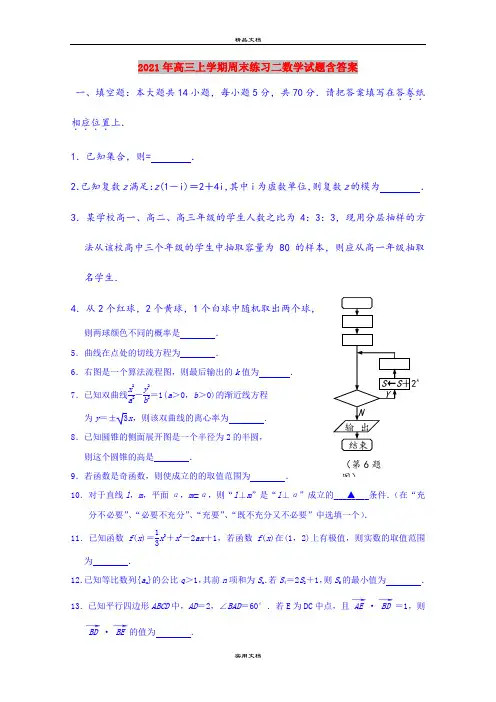 精品文档
2021年高三上学期周末练习二数学试题含答案
一、填空题：本大题共14小题，每小题5分，共70分．请把答案填写在答卷纸
相应位置上．
1．已知集合，则= ．
2.已知复数z满足：z(1－i)＝2＋4i,其中i为虚数单位,则复数z的模为 ．
3．某学校高一、高二、高三年级的学生人数之比为4：3：3，现用分层抽样的方
法从该校高中三个年级的学生中抽取容量为80的样本，则应从高一年级抽取
名学生．
4．从2个红球，2个黄球，1个白球中随机取出两个球，
则两球颜色不同的概率是 ．
5．曲线在点处的切线方程为 ．
6．右图是一个算法流程图，则最后输出的k值为 ．
7．已知双曲线x²/a²－y²/b²＝1(a＞0，b＞0)的渐近线方程
为y＝±√3x，则该双曲线的离心率为 ．
8．已知圆锥的侧面展开图是一个半径为2的半圆，
则这个圆锥的高是 ．
S←S＋2ᵏ
Y
N
输 出
结束
（第6题
9．若函数是奇函数，则使成立的的取值范围为 ．
10．对于直线l，m，平面α，m⊂α，则“l⊥m”是“l⊥α”成立的 ▲ 条件．（在“充
分不必要”、“必要不充分”、“充要”、“既不充分又不必要”中选填一个）．
11．已知函数f(x)＝1/3x³＋x²－2ax＋1，若函数f(x)在(1，2)上有极值，则实数的取值范围
为 ．
12.已知等比数列{aₙ}的公比q＞1,其前n项和为Sₙ.若S₄＝2S₂＋1,则S₆的最小值为 ．
13．已知平行四边形ABCD中，AD＝2，∠BAD＝60°．若E为DC中点，且AE·BD＝1，则
BD·BE的值为 ．
实用文档